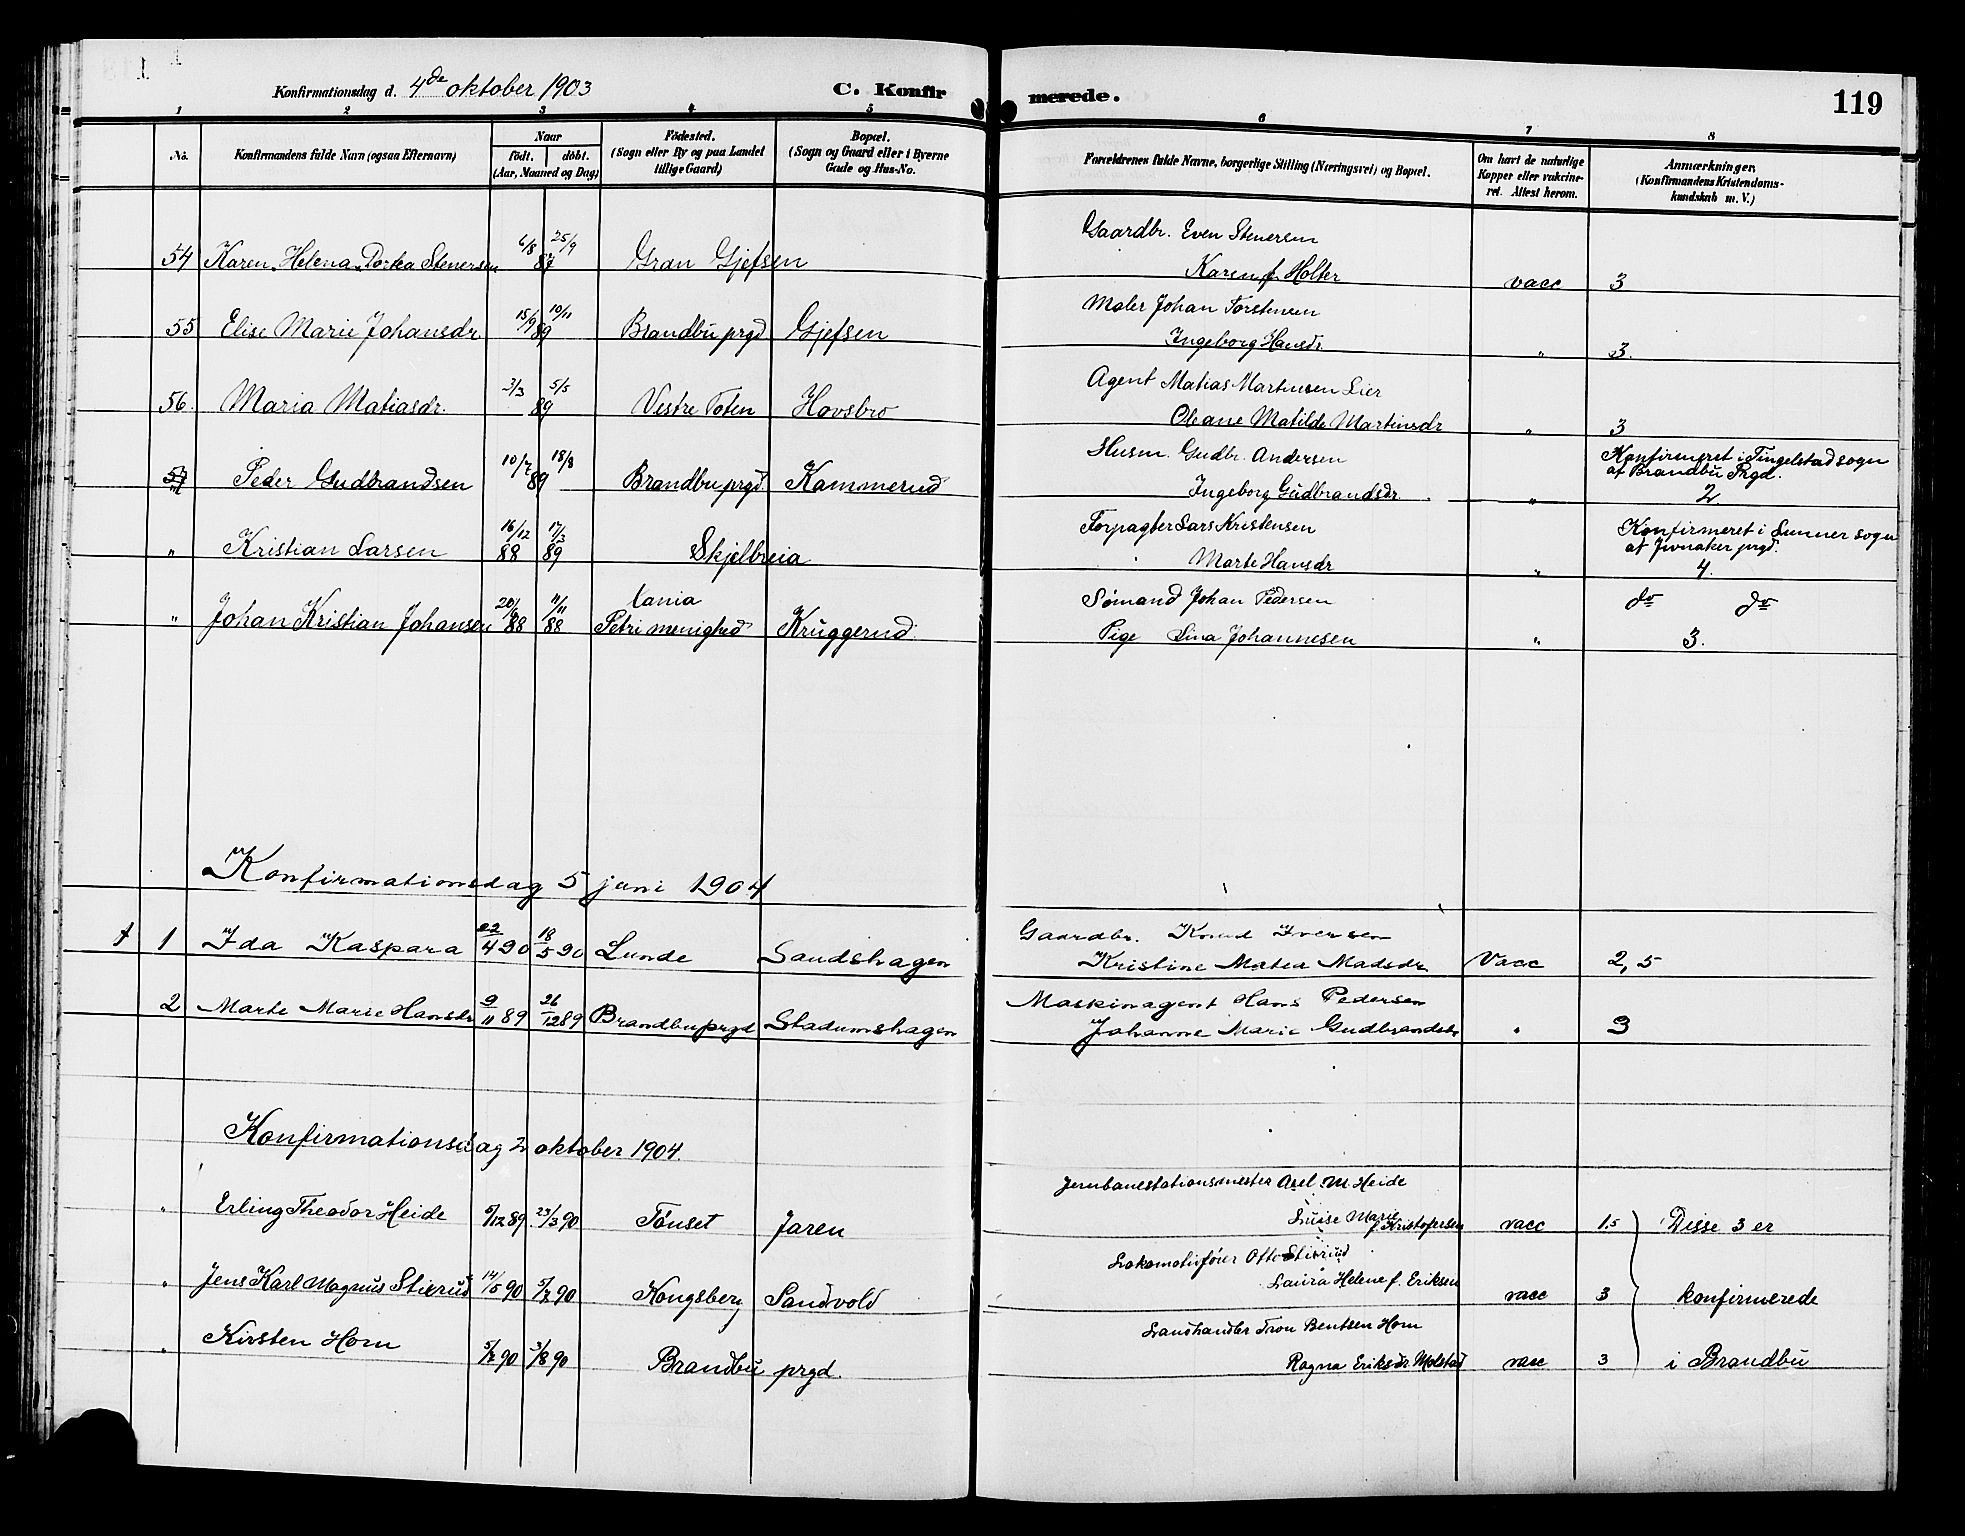 Konfirmationsdag d. 4de oktober 1903 C. Konfirmerede. 119
1 2 3 4 5 6 7 8
No. Konfirmandens fulde Navn (ogsaa Efternavn) Naar født. døbt. (Aar, Maaned og Dag) Fødested. (Sogn eller By og paa Landet tillige Gaard) Bopæl. (Sogn og Gaard eller i Byerne Gade og Hus-No. Forældrenes fulde Navne, borgerlige Stilling (Næringsvei) og Bopæl. Om havt de naturlige Kopper eller vakcineret. Attest herom. Anmærkninger, (Konfirmandens Kristendomskundskab m. V.)
Gaardbr. Even Stenersen
54 Karen Helena Dortea Stenersen 6/8 25/9 87 Gran Gjefsen Karen f. Holter vacc 3
Maler Johan Torstensen
55 Elise Marie Johansdr. 15/9 10/11 89 Brandbu prgd Gjefsen Ingeborg Hansdr. " 3.
Agent Matias Martinsen Lier
56. Maria Matiasdr. 3/3 5/5 89 Vestre Toten Hovsbro Oleane Matilde Martinsdr " 3
Husm. Gudbr. Andersen Konfirmeret i Tingelstad sogn af Brandbu Prgd.
57 Peder Gudbrandsen 10/7 18/8 89 Brandbu prgd Kammerud Ingeborg Gudbrandsdr. " 2
Forpagter Lars Kristensen Konfirmeret i Lunner sogn af Jevnaker prgd.
" Kristian Larsen 16/12 88 17/3 89 Skjelbreia Marte Hansdr " 4.
Cania Sømand Johan Pedersen do do
" Johan Kristian Johansen 20/8 88 11/11 88 Petri menighed Kruggerud Pige Lina Johannesen " 3.
Konfirmationsdag 5 juni 1904
Gaardbr. Knud Iversen
1 Ida Kaspara 22/4 90 18/5 90 Lunde Sandshagen Kristine Matea Madsdr Vacc 2,5
Maskinagent Hans Pedersen
2 Marte Marie Hansdr 9/11 89 26/12 89 Brandbu prgd Stadumshagen Johanne Marie Gudbrandsdr " 3
Konfirmationsdag 2 oktober 1904.
Jernbanestationsmester Axel M. Heide
" Erling Theodor Heide 6/12 89 23/3 90 Tönset Jaren Luise Marie f. Kristofersen vacc 1.5 Disse 3 er
Lokomotivfører Otto Stierud
" Jens Karl Magnus Stierud 14/5 90 5/7 90 Kongsberg Sandvold Laura Helene f. Eriksen vacc 3 konfirmerede
Landhandler Tron Bentsen Horn
" Kirsten Horn 5/7 90 3/8 90 Brandbu prgd. Ragna Eriksdr Molstad vacc 3 i Brandbu